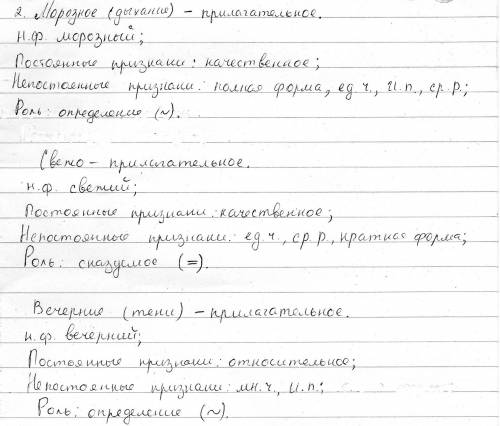 2. Морозное (дыхание) – прилагательное.
н.ф. морозный;
Постоянные признаки: качественное;
Непостоянные признаки: полная форма, ед.ч., И.п., ср.р.;
Роль: определение (~).
Свежо – прилагательное.
н.ф. свежий;
Постоянные признаки: качественное;
Непостоянные признаки: ед.ч., ср.р., краткая форма;
Роль: сказуемое (=).
Вечерние (тени) – прилагательное.
н.ф. вечерний;
Постоянные признаки: относительное;
Непостоянные признаки: мн.ч., И.п.;
Роль: определение (~).